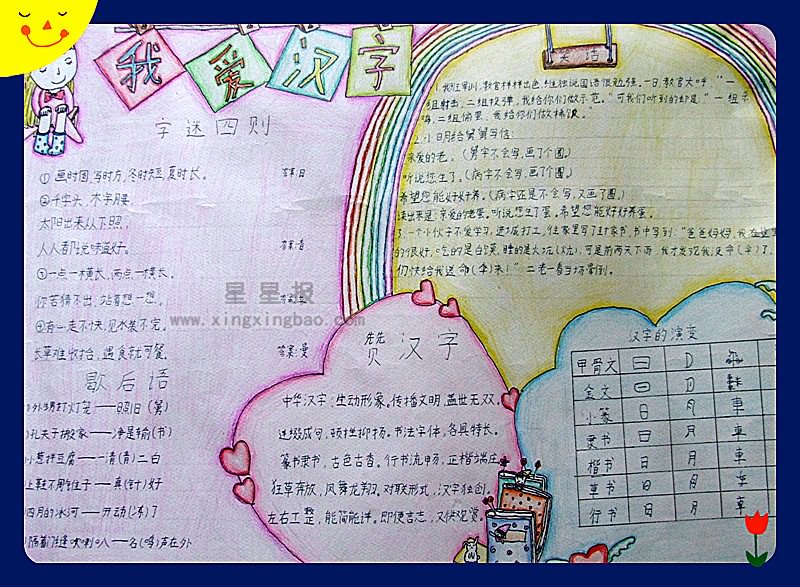 我爱汉字
字迷四则
① 画时圆,写时方,冬时短,夏时长。 答案:日
②千字头,木字腰,
太阳出来从下照,
人人香味好。 答案:香
③一点一横长,两点一横长,
你若猜不出,站着想一想。
④有一走不快,见水装不完,
长草难收拾,遇食就可餐。 答案:曼
歇后语
外甥打灯笼——照旧(舅)
孔夫子搬家——净是输(书)
小葱拌豆腐——清(青)二白
上鞋不用锥子——真(针)好
四月的冰河——开动(冻)了
隔着门缝吹喇叭——名(鸣)声在外
星星报
www.xingxingbao.com
笑话
我班军训,教官样样出色,
一组射击,二组投弹,我给你们做示范。"可我们听到的却是"一组杀
鸡,二组偷蛋,我给你们做稀饭。"
2.小明给舅舅写信:
亲爱的老。(舅字不会写,画了个圈)
听说您生了。(病字不会写,画了个圈)
希望您能好好养。(病字还是不会写,又画了圈)
读出来是:亲爱的老蛋。听说您生了蛋。希望您能好好养蛋。
3.一个小伙子不爱学习,进城打工,往家里写了封家书,书中写到:"爸爸妈妈,我在这里
的很好。吃的是白菜,睡的是大坑(炕),可是前两天下雨,我才发现我没命(伞)了,
们快给我送命(伞)来!"二老一看当场晕倒。
赞汉字
中华汉字,生动形象。传播文明,盖世无双。
连缀成句,顿挫抑扬。书法字体,各具特长。
篆书隶书,古色古香。行书流畅,正楷端庄
狂草奔放,凤舞龙翔。对联形式,汉字独创。
左右工整,能简能详。即便言志,又供观赏。
汉字的演变
甲骨文
金文
小篆 日 月 車
隶书 日 月 車
楷书 日 月 車
草书 日 月
行书 日 月